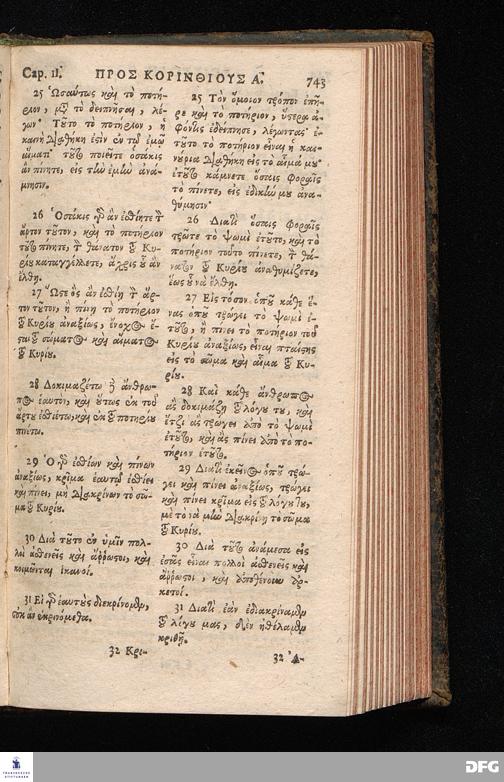 Cap. 11. ΠΡΟΣ ΚΟΡΙΝΘΙΟΥΣ Α. 743
25 Ὡσαύτως καὶ τὸ ποτή-
ριον, μετὰ τὸ δειπνῆσαι, λέ-
γων· Τοῦτο τὸ ποτήριον, ἡ
καινὴ διαθήκη ἐστὶν ἐν τῷ ἐμῷ
αἵματι· τοῦτο ποιεῖτε ὁσάκις
ἂν πίνητε, εἰς τὴν ἐμὴν ἀνά-
μνησιν.
26 Ὁσάκις γὰρ ἂν ἐσθίητε τὸν
ἄρτον τοῦτον, καὶ τὸ ποτήριον
τοῦτο πίνητε, τὸν θάνατον τοῦ Κυ-
ρίου καταγγέλλετε, ἄχρις οὗ ἂν
ἔλθῃ.
27 Ὥστε ὃς ἂν ἐσθίῃ τὸν ἄρ-
τον τοῦτον, ἢ πίνῃ τὸ ποτήριον
τοῦ Κυρίου ἀναξίως, ἔνοχος ἔ-
σται τοῦ σώματος καὶ αἵματος
τοῦ Κυρίου.
28 Δοκιμαζέτω δὲ ἄνθρω-
πος ἑαυτὸν, καὶ οὕτως ἐκ τοῦ
ἄρτου ἐσθιέτω, καὶ ἐκ τοῦ ποτηρίου
πινέτω.
29 Ὁ γὰρ ἐσθίων καὶ πίνων
ἀναξίως, κρῖμα ἑαυτῷ ἐσθίει
καὶ πίνει, μὴ διακρίνων τὸ σῶ-
μα τοῦ Κυρίου.
30 Διὰ τοῦτο ἐν ὑμῖν πολ-
λοὶ ἀσθενεῖς καὶ ἄῤῥωστοι, καὶ
κοιμῶνται ἱκανοί.
31 Εἰ γὰρ ἑαυτοὺς διεκρίνομεν,
οὐκ ἂν ἐκρινόμεθα.
32 Κρι-
25 Τὸν ὅμοιον τρόπον ἐπῆ-
ρε καὶ τὸ ποτήριον, ὕστερα ἀ-
φόντις ἐδείπνησε, λέγωντας· ἐ-
τοῦτο τὸ ποτήριον εἶναι ἡ και-
νούρια διαθήκη εἰς τὸ αἷμά μου·
ἐτοῦτο κάμνετε ὅσαις φοραῖς
τὸ πίνετε, εἰς ἐδικήν μου ἀνα-
θύμησιν·
26 Διατὶ ὅσαις φοραῖς
τρῶτε τὸ ψωμὶ ἐτοῦτο, καὶ τὸ
ποτήριον τοῦτο πίνετε, τὸν θά-
νατον τοῦ Κυρίου ἀναθυμίζετε,
ἕως οὗ νὰ ἔλθῃ.
27 Εἰς τόσον ὁποῦ κάθε ἕ-
νας ὁποῦ τρώγει τὸ ψωμὶ ἐ-
τοῦτο, ἢ πίνει τὸ ποτήριον τοῦ
Κυρίου ἀναξίως, εἶναι πταίστης
εἰς τὸ σῶμα καὶ αἷμα τοῦ Κυ-
ρίου.
28 Καὶ κάθε ἄνθρωπος
ἂς δοκιμάζῃ τοῦ λόγου του, καὶ
ἔτζι ἂς τρώγει ἀπὸ τὸ ψωμὶ
ἐτοῦτο, καὶ ἂς πίνει ἀπὸ τὸ πο-
τήριον ἐτοῦτο.
29 Διατὶ ἐκεῖνος ὁποῦ τρώ-
γει καὶ πίνει ἀναξίως, τρώγει
καὶ πίνει κρίμα εἰς τοῦ λόγου του,
μὲ τὸ νὰ μὴν διακρίνῃ τὸ σῶμα
τοῦ Κυρίου.
30 Διὰ τοῦτο ἀνάμεσα εἰς
ἐσᾶς εἶναι πολλοὶ ἀσθενεῖς καὶ
ἄῤῥωστοι, καὶ ἀποθένουν ἀρ-
κετοί.
31 Διατὶ ἐὰν ἐδιακρίναμεν
τοῦ λόγου μας, δὲν ἠθέλαμεν
κριθῇ.
32 Ἀ-
DFG